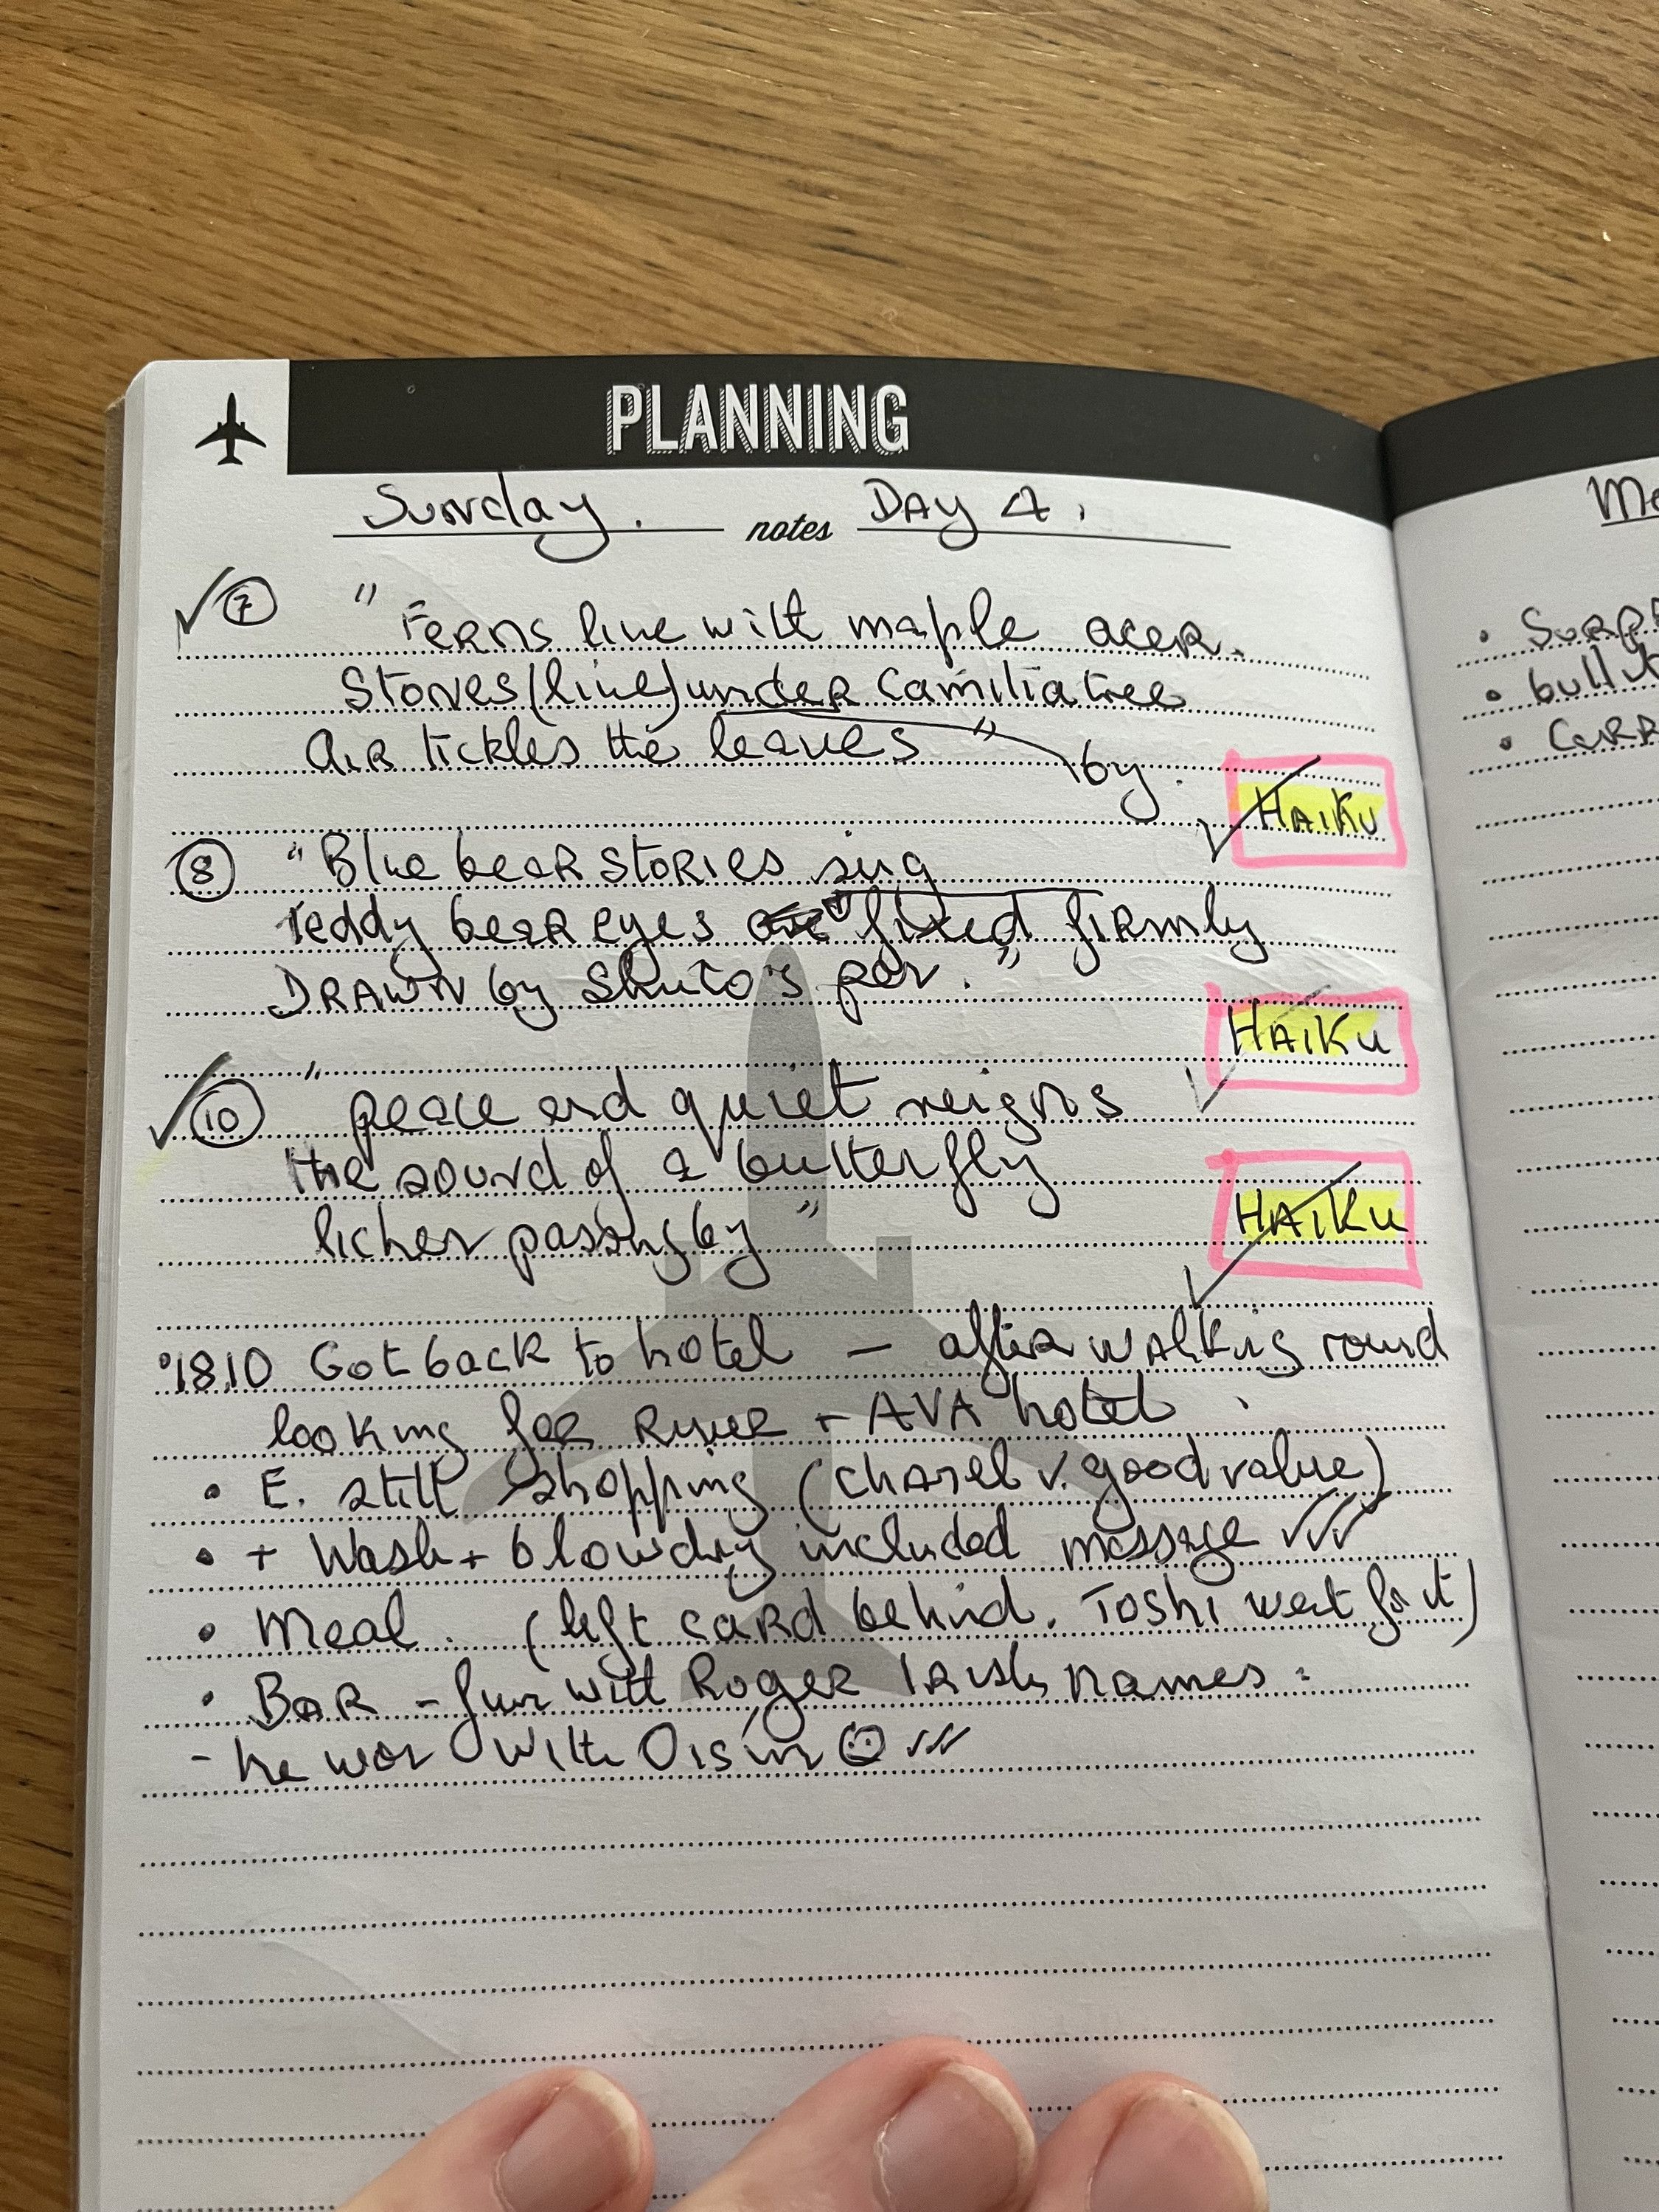 PLANNING
Sunday. notes DAY 4.
7 "Ferns line with maple acer.
Stones (line) under Camilia tree
Air tickles the leaves" by
HAIKU
8 "Blue bear stories sing
Teddy bear eyes are fixed firmly
DRAWN by Shuto's pen."
HAIKU
10 "peace and quiet reigns
the sound of a butterfly
lichen passing by"
HAIKU
18.10 Got back to hotel – after walking round
looking for River + AVA hotel.
• E. still shopping (Chanel v. good value)
• + Wash + blowdry included massage
• Meal. (left card behind. Toshi went for it)
• BAR - fun with Roger Irish names:
- he won with Oisín
• 
• bullet
•